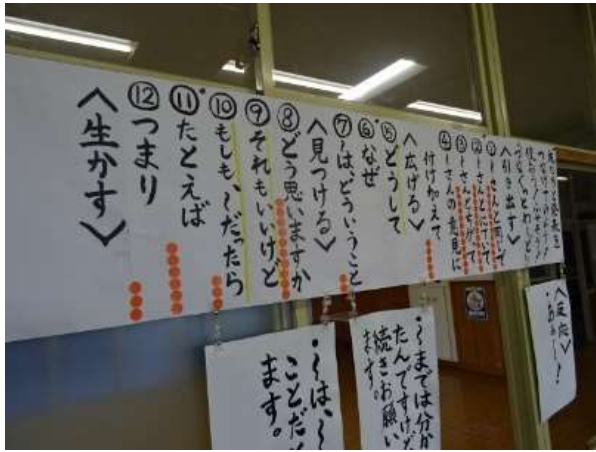 〈引き出す〉
①〜さんと同いで
②〜さんとにていて
③〜さんとちがって
④〜さんの意見に
付け加えて
〈広げる〉
⑤どうして
⑥なぜ
⑦〜は、どういうこと
〈見つける〉
⑧どう思いますか
⑨それもいいけど
⑩もしも、〜だったら
⑪たとえば
⑫つまり
〈生かす〉
〈反応〉
・あぁ〜!
・〜までは分か
たんですけど
続きお願い
ます。
・〜は、〜
ことだ
ます。